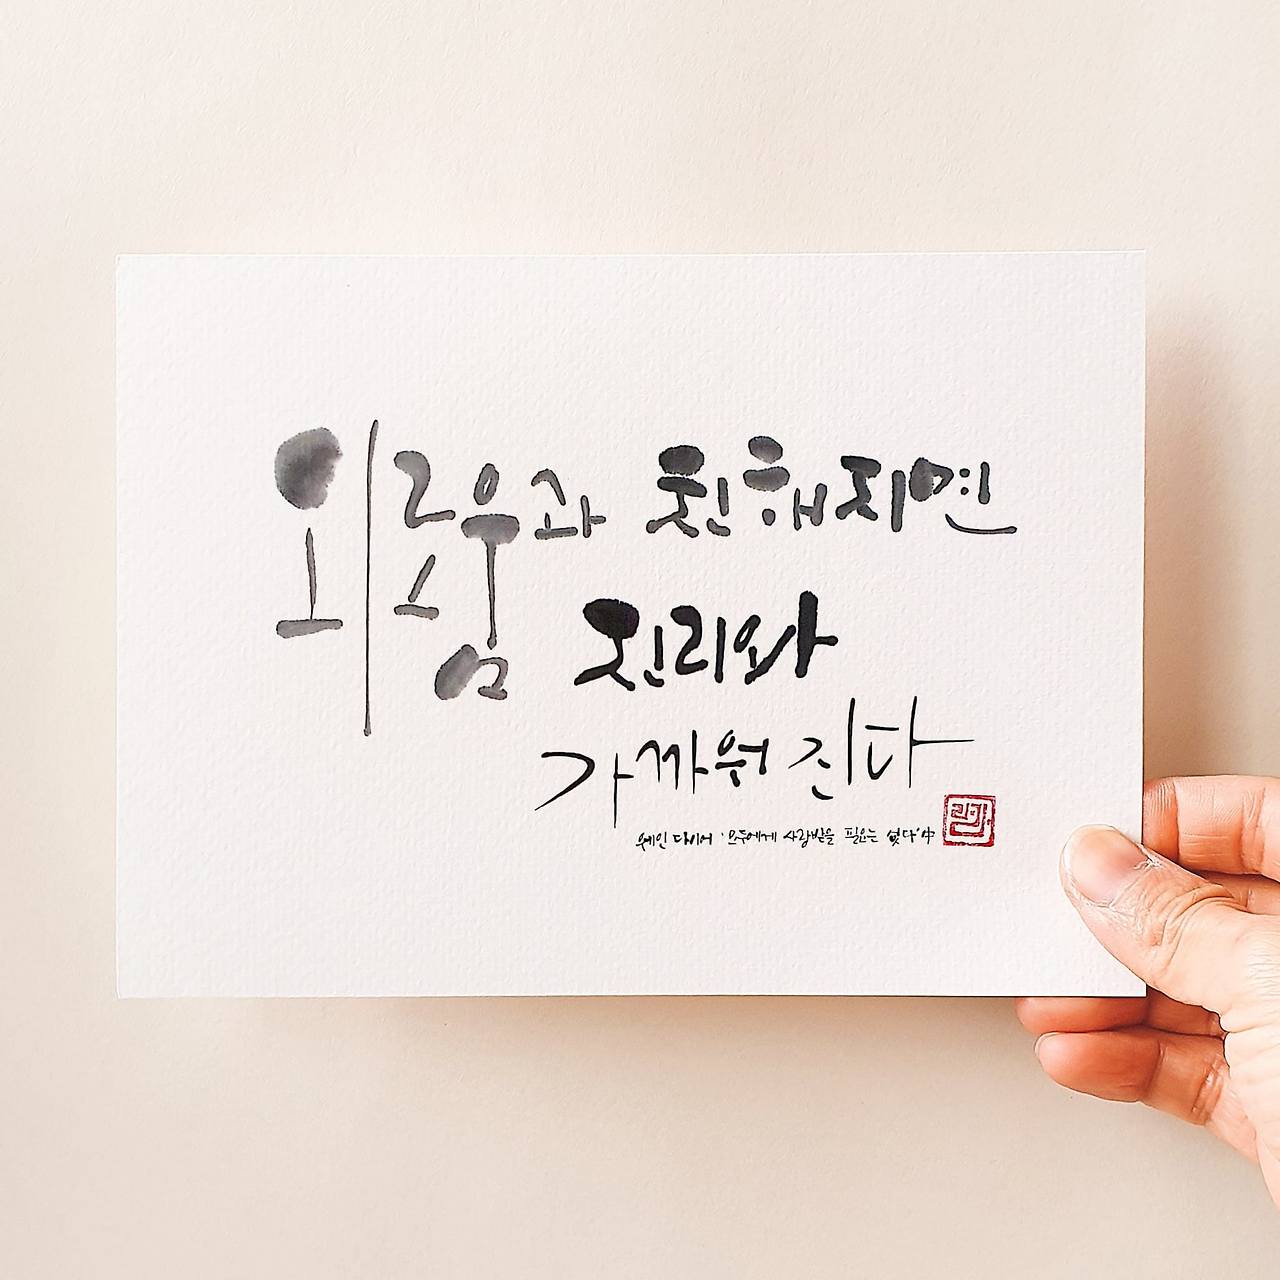 외로움과 친해지면
진리와
가까워 진다
웨인 다이어 '모두에게 사랑받을 필요는 없다' 中